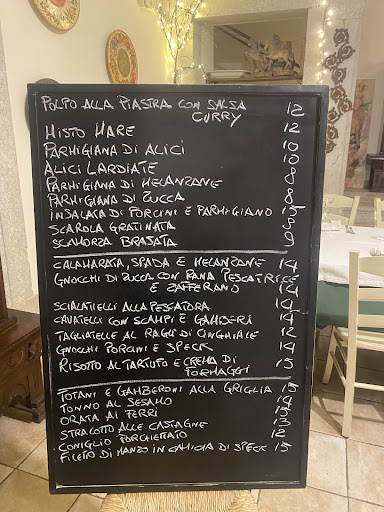 POLPO ALLA PIASTRA CON SALSA 12
CURRY
MISTO MARE 12
PARMIGIANA DI ALICI 10
ALICI LARDIATE 10
PARMIGIANA DI MELANZANE 8
PARMIGIANA DI ZUCCA 8
INSALATA DI PORCINI E PARMIGIANO
SCAROLA GRATINATA
SCAMORZA BRASATA
CALAMARATA, SPADA E MELANZANE 14
GNOCCHI DI ZUCCA CON RANA PESCATRICE 14
E ZAFFERANO
SCIALATIELLI ALLA PESCATORA 14
CAVATELLI CON SCAMPI E GAMBERI 14
TAGLIATELLE AL RAGÙ DI CINGHIALE 12
GNOCCHI PORCINI E SPECK 14
RISOTTO AL TARTUFO E CREMA DI 15
FORMAGGI
TOTANI E GAMBERONI ALLA GRIGLIA 15
TONNO AL SESAMO 14
ORATA AI FERRI
STRACOTTO ALLE CASTAGNE
CONIGLIO PORCHETTATO 12
FILETTO DI MANZO IN CAMICIA DI SPECK 15